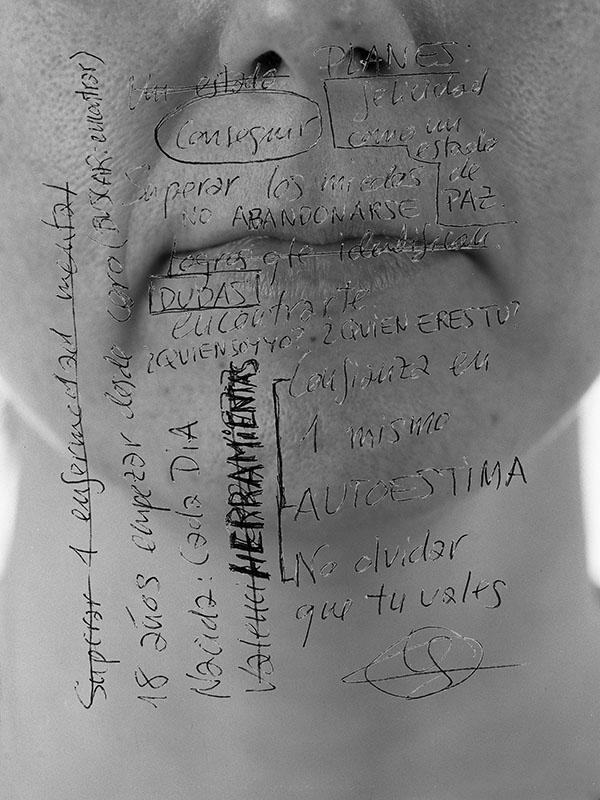 PLANES:
Un estado
felicidad
como un
estado
de
PAZ.
Conseguir
Superar los miedos
NO ABANDONARSE
Logros q te identifican.
DUDAS
encontrarte
¿QUIEN SOY YO? ¿QUIEN ERES TU?
Confianza en
1 mismo
AUTOESTIMA
No olvidar
que tu vales
Superar 1 enfermedad mental
18 años empezar desde cero (BUSCAR: encontrar)
Nacida: Cada DIA
HERRAMIENTAS